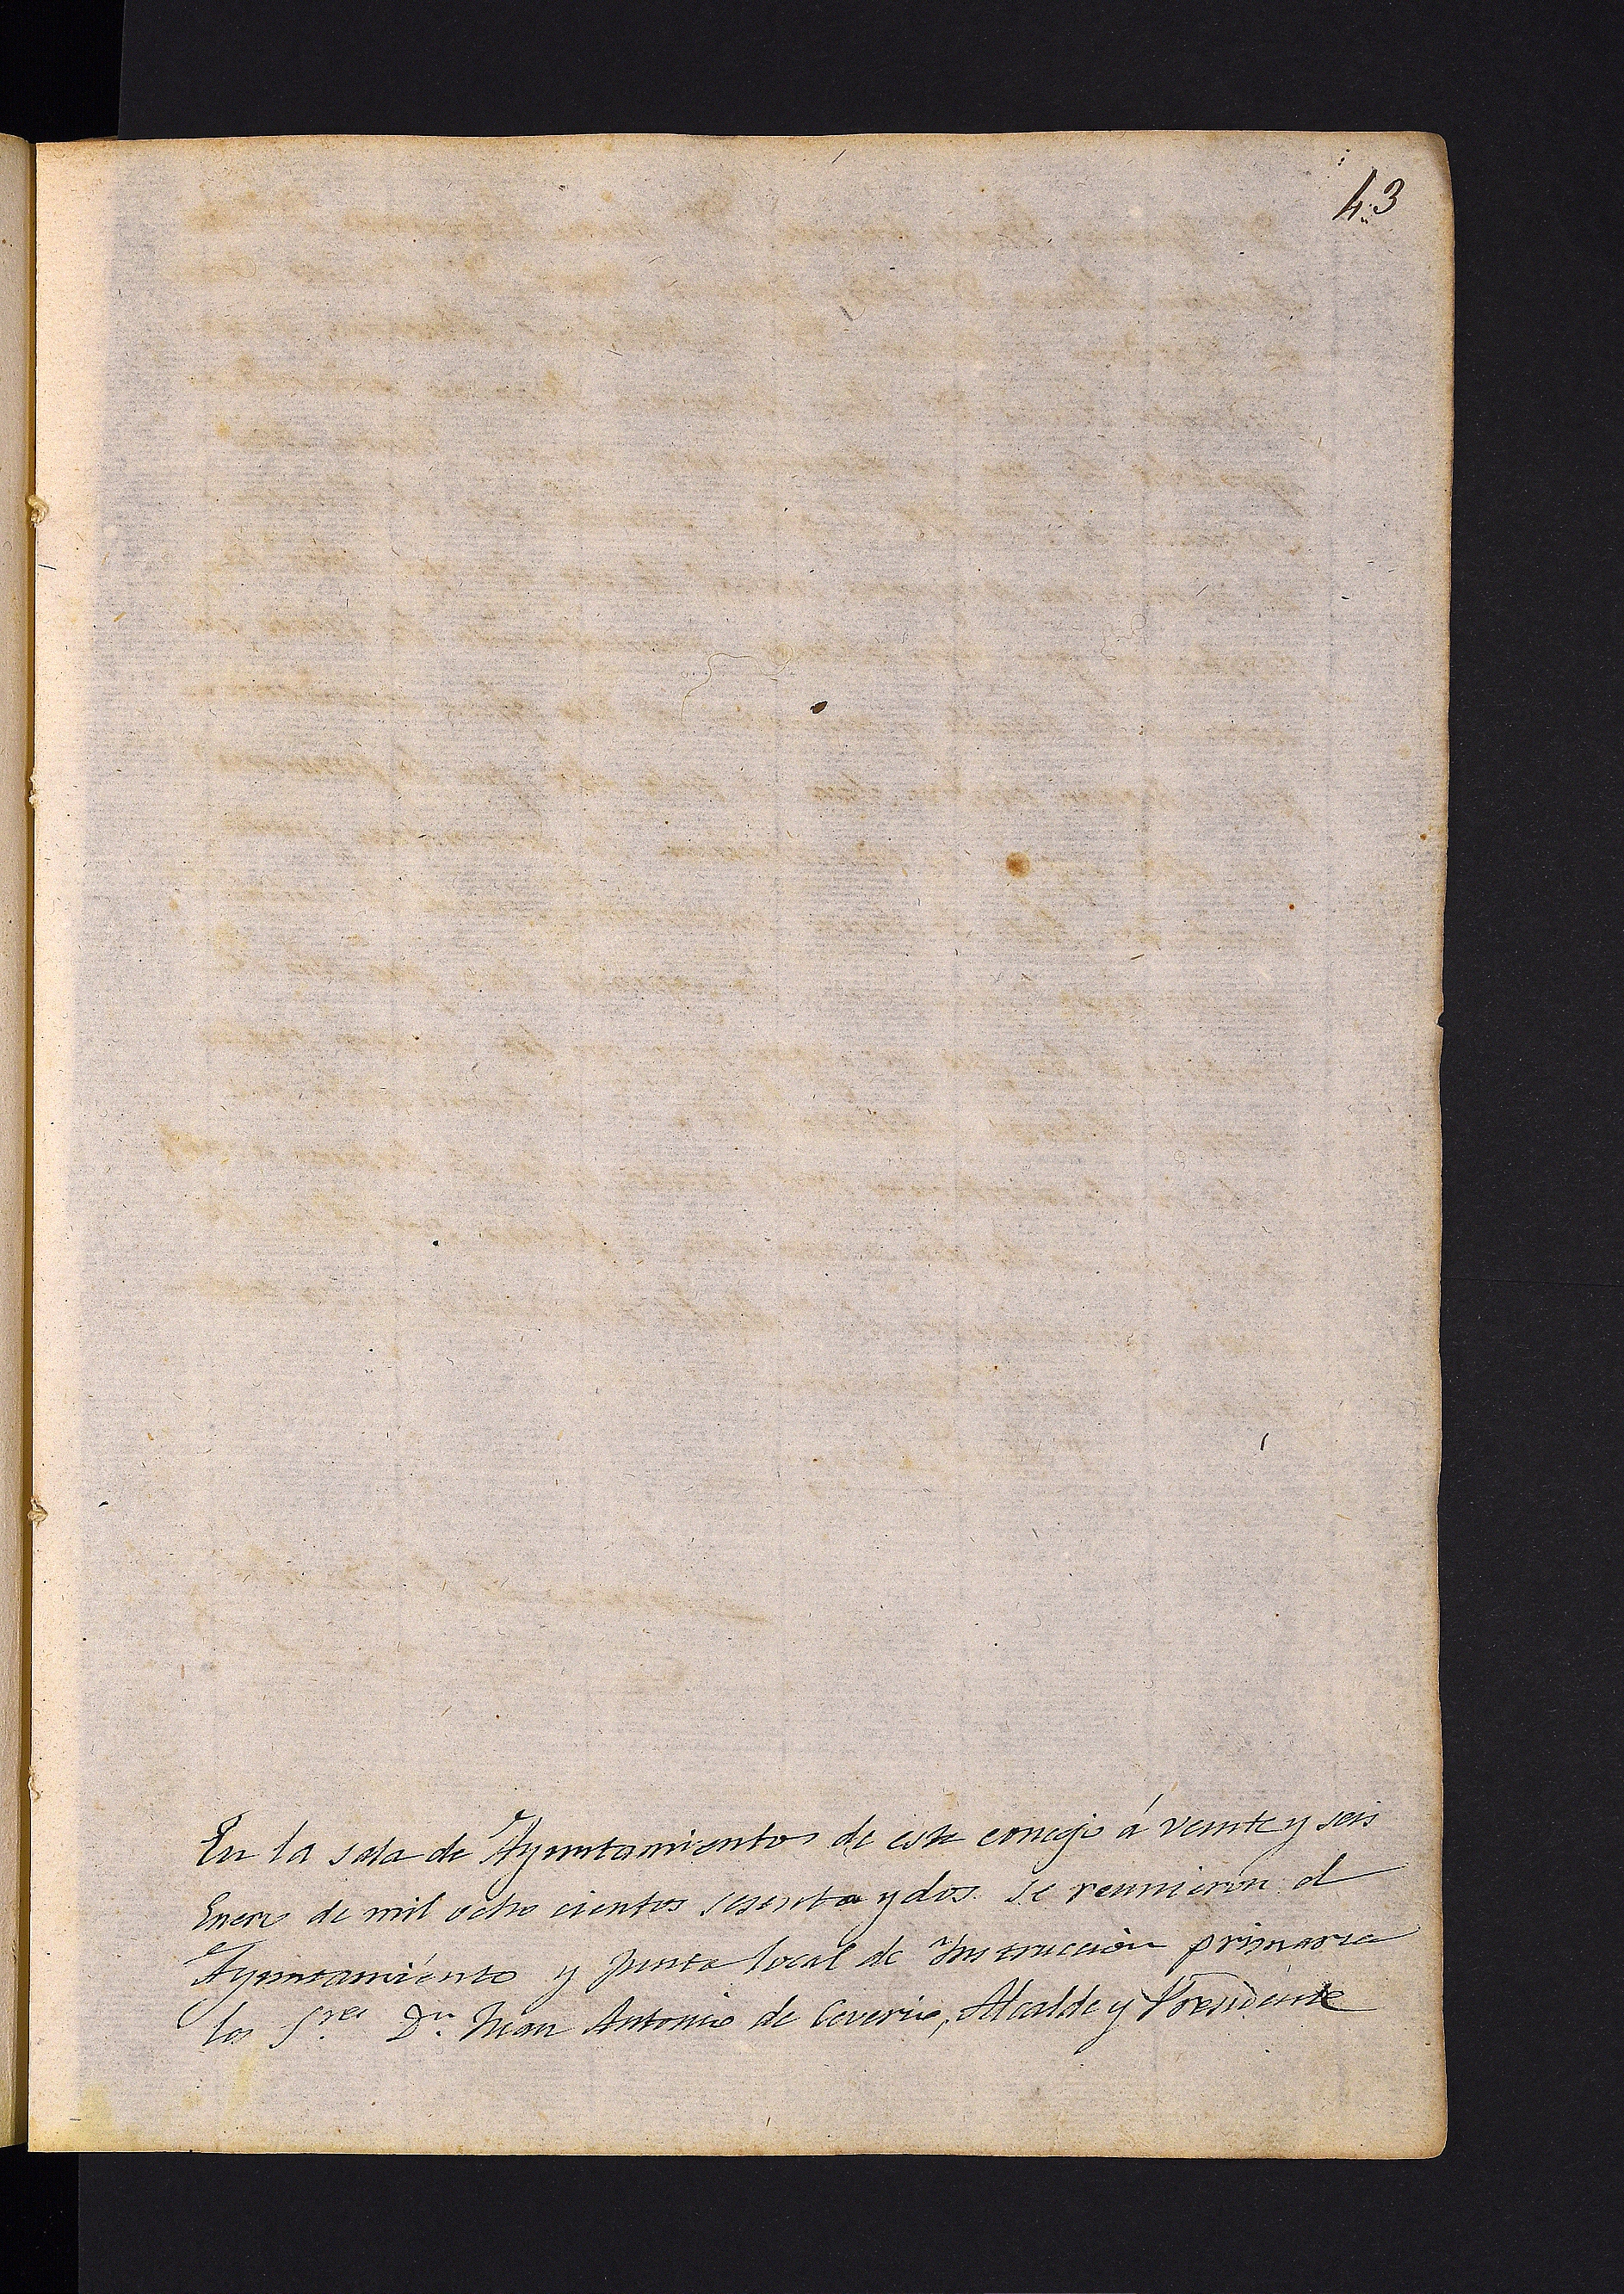 43
En la sala de Ayuntamientos de este concejo á veinte y seis
Enero de mil ocho cientos sesenta y dos se reunieron el
Ayuntamiento y Junta local de Instruccion primaria
los S.res D.n Juan Antonio de Ceverio, Alcalde y Presidente